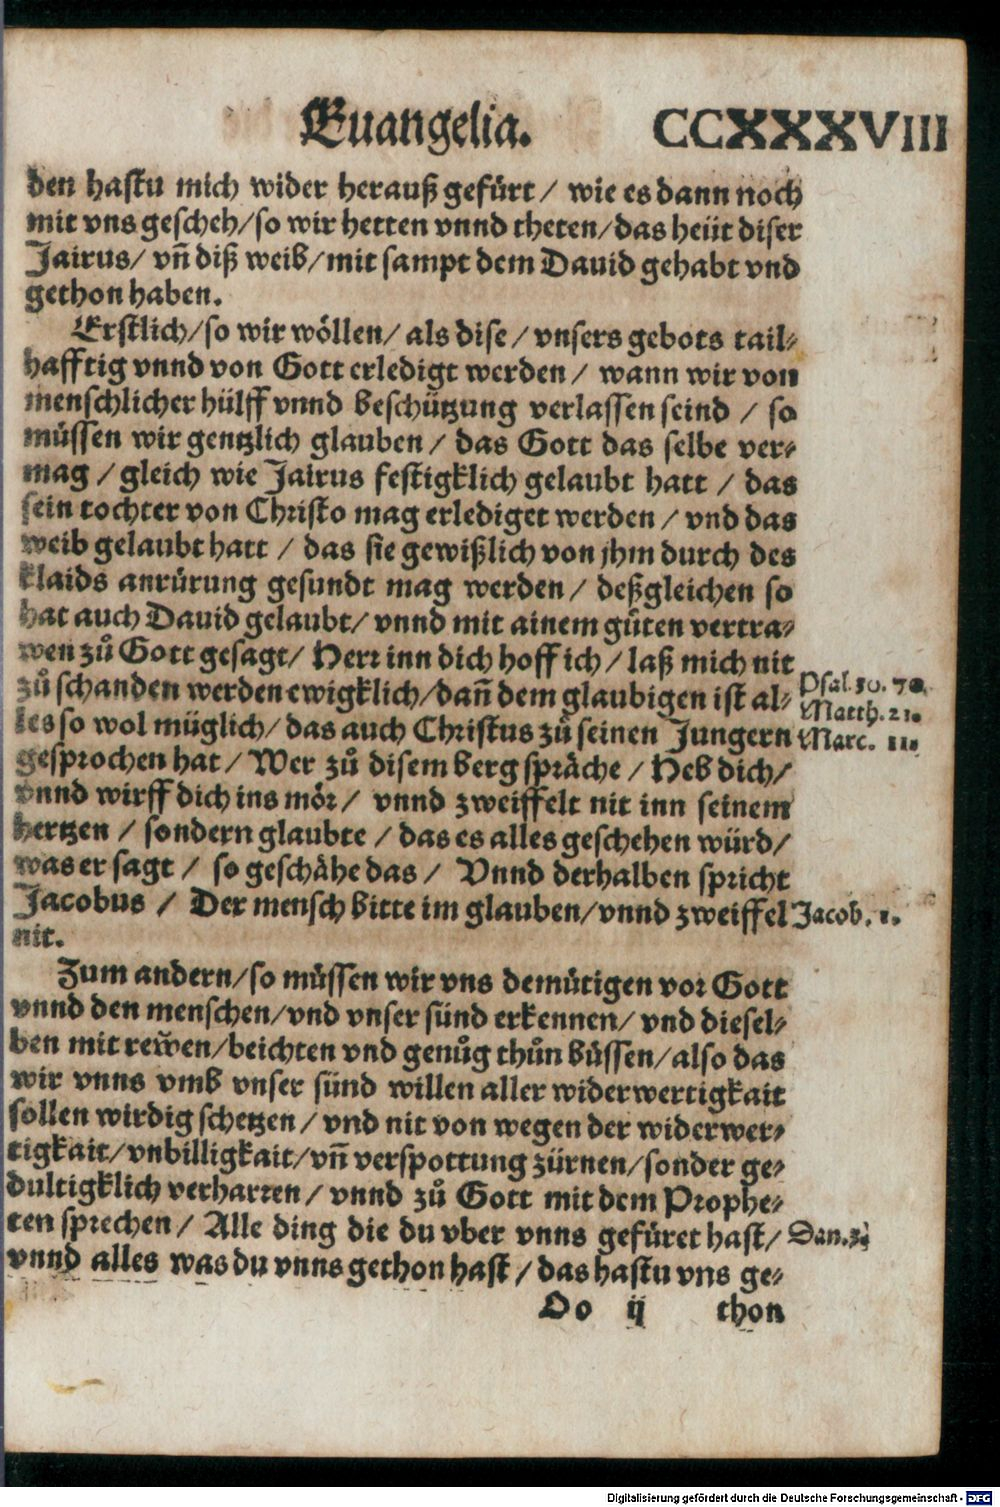 Euangelia. CCXXXVIII
den hastu mich wider herauß gefürt / wie es dann noch
mit vns gescheh/so wir hetten vnnd theten/das heüt diser
Jairus/ vñ diß weib/mit sampt dem Dauid gehabt vnd
gethon haben.
Erstlich/so wir wöllen/ als dise / vnsers gebots tail⸗
hafftig vnnd von Gott erledigt werden / wann wir von
menschlicher hülff vnnd beschützung verlassen seind / so
müssen wir gentzlich glauben / das Gott das selbe ver⸗
mag / gleich wie Jairus festigklich gelaubt hatt / das
sein tochter von Christo mag erlediget werden / vnd das
weib gelaubt hatt / das sie gewißlich von jhm durch des
klaids anrürung gesundt mag werden / deßgleichen so
hat auch Dauid gelaubt/ vnnd mit ainem gůten vertra⸗
wen zů Gott gesagt/ Herr inn dich hoff ich / laß mich nit
zů schanden werden ewigklich/dañ dem glaubigen ist al⸗
les so wol müglich/ das auch Christus zů seinen Jungern
gesprochen hat / Wer zů disem berg spräche / Heb dich/
vnnd wirff dich ins mör / vnnd zweiffelt nit inn seinem
hertzen / sondern glaubte / das es alles geschehen würd/
was er sagt / so geschähe das / Vnnd derhalben spricht
Jacobus / Der mensch bitte im glauben/vnnd zweiffel
nit.
Psal. 30. 70.
Matth. 21.
Marc. 11.
Jacob. 1.
Zum andern/so müssen wir vns demütigen vor Gott
vnnd den menschen/vnd vnser sünd erkennen/ vnd diesel⸗
ben mit rewen/beichten vnd genůg thůn büssen/also das
wir vnns vmb vnser sünd willen aller widerwertigkait
sollen wirdig schetzen / vnd nit von wegen der widerwer⸗
tigkait/vnbilligkait/vñ verspottung zürnen/sonder ge⸗
dultigklich verharren / vnnd zů Gott mit dem Prophe⸗
ten sprechen / Alle ding die du vber vnns gefüret hast/
vnnd alles was du vnns gethon hast / das hastu vns ge⸗
Dan. 3.
Oo ij thon
Digitalisierung gefördert durch die Deutsche Forschungsgemeinschaft - DFG